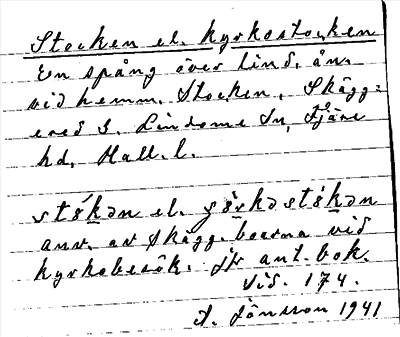 Stocken el. kyrkostocken
En spång över Lind. ån.
vid hemm. Stocken, Skägg-
ered S. Lindome Sn, Fjäre
hd, Hall. l.
stók̲ən el. çör̲kəstók̲ən
anv. av Skägg. boarna vid
kyrkobesök. Jfr ant. bok.
sid. 174.
A. Jönsson 1941